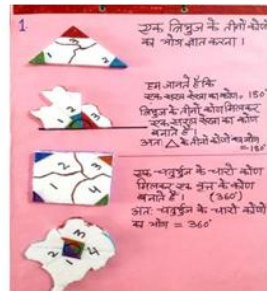 1.
एक त्रिभुज के तीनों कोणों
का योग ज्ञात करना।
3
1 2
हम जानते हैं कि
एक सरल रेखा का कोण = 180°
त्रिभुज के तीनों कोण मिलकर
एक सरल रेखा का कोण
बनाते हैं।
अतः △ के तीनों कोणों का योग
= 180°
1 3 2
2 3
1 4
एक चतुर्भुज के चारों कोण
मिलकर एक वृत्त के कोण
बनाते हैं। (360°)
अतः चतुर्भुज के चारों कोणों
का योग = 360°
2 3
1 4